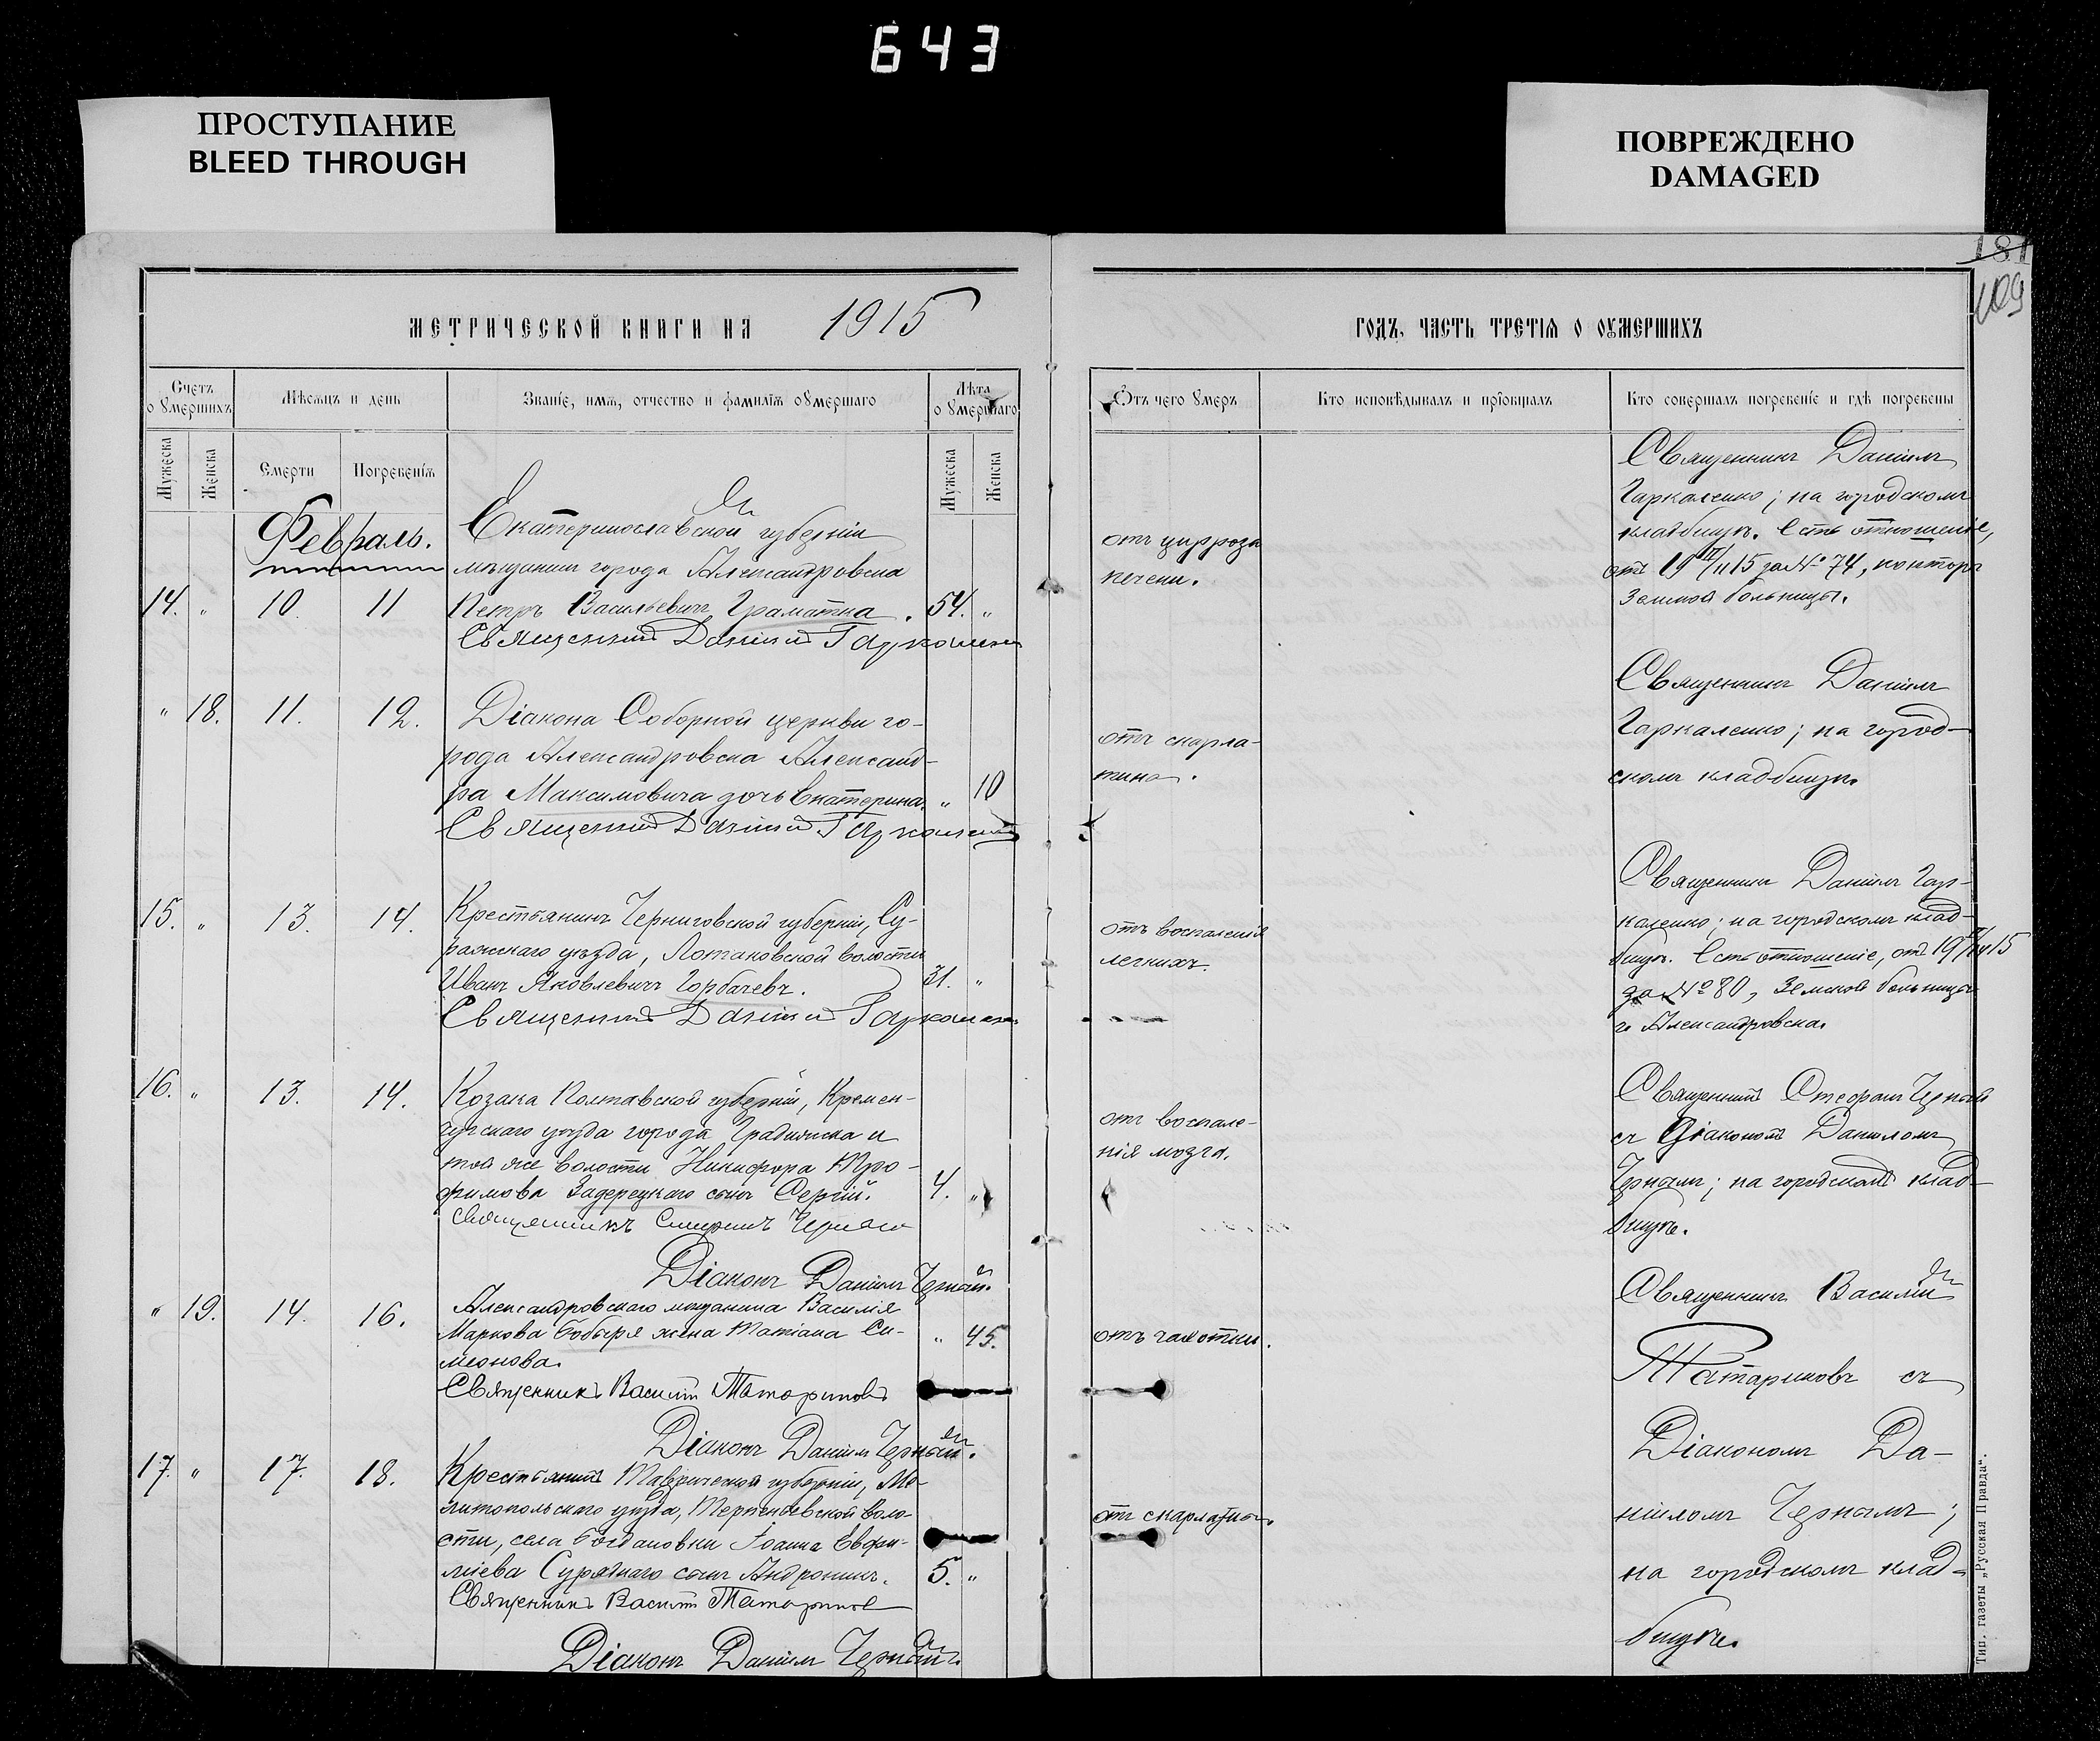 643
ПРОСТУПАНИЕ
BLEED THROUGH
ПОВРЕЖДЕНО
DAMAGED
181
109
МЕТРИЧЕСКОЙ КНИГИ НА 1915
ГОДЪ, ЧАСТЬ ТРЕТІЯ О ОУМЕРШИХЪ
Счетъ оумершихъ
Мѣсяцъ и день
Званіе, имя, отчество и фамилія оумершаго
Лѣта оумершаго
Отъ чего умеръ
Кто исповѣдывалъ и пріобщалъ
Кто совершалъ погребеніе и гдѣ погребены
Мужеска
Женска
Смерти
Погребенія
Мужеска
Женска
Февраль.
Екатеринославской губерніи
мѣщанинъ города Александровска
14. " 10. 11 Петръ Васильевичъ Граматка. 54. "
Священникъ Даніилъ Гаркаленко
отъ цирроза
печени.
Священникъ Даніилъ
Гаркаленко; на городскомъ
кладбищѣ. Есть отношеніе,
отъ 19 15 за № 74, конторы
Земской больницы.
" 18. 11. 12. Діакона Соборной церкви го-
рода Александровска Александ-
ра Максимовича дочь Екатерина. " 10
Священникъ Даніилъ Гаркаленко
отъ скарла-
тина.
Священникъ Даніилъ
Гаркаленко; на город-
скомъ кладбищѣ.
15. " 13. 14. Крестьянинъ Черниговской губерніи, Су-
ражскаго уѣзда, Лотаковской волости
Иванъ Яковлевичъ Горбачевъ. 31. "
Священникъ Даніилъ Гаркаленко
отъ воспаленія
легкихъ.
Священникъ Даніилъ Гар-
каленко; на городскомъ клад-
бищѣ. Есть отношеніе, отъ 19 15
за № 80, Земской больницы
г. Александровска.
16. " 13. 14. Козака Полтавской губерніи, Кремен-
чугскаго уѣзда города Градижска и
той же волости Никифора Тро-
фимова Задерецкаго сынъ Сергій. 4. "
Священникъ Стефанъ Черный
Діаконъ Даніилъ Черный.
отъ воспале-
нія мозга.
Священникъ Стефанъ Черный
съ Діакономъ Даніиломъ
Чернымъ; на городскомъ клад-
бищѣ.
" 19. 14. 16. Александровскаго мѣщанина Василія
Маркова Бобыря жена Татіана Си-
меонова. " 45.
Священникъ Василій Татариновъ
Діаконъ Даніилъ Черный.
отъ чахотки.
Священникъ Василій
Татариновъ съ
Діакономъ Да-
ніиломъ Чернымъ;
на городскомъ клад-
бищѣ.
17. " 17. 18. Крестьянина Таврической губерніи, Ме-
литопольскаго уѣзда, Терпеньевской воло-
сти, села Богдановки Іоанна Евфи-
міева сынъ Андроникъ. 5. "
Священникъ Василій Татариновъ
Діаконъ Даніилъ Черный.
отъ скарлатины.
Тип. газеты „Русская Правда“.